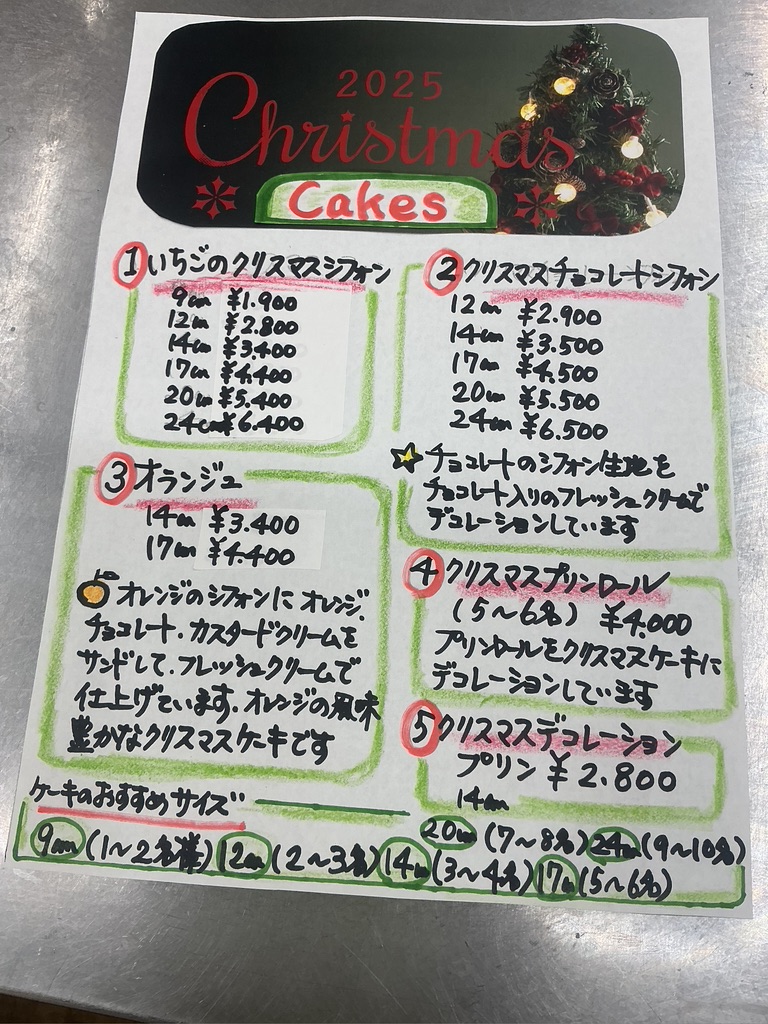 2025
Christmas
Cakes
①いちごのクリスマスシフォン
9cm ¥1.900
12cm ¥2.800
14cm ¥3.400
17cm ¥4.400
20cm ¥5.400
24cm ¥6.400
②クリスマスチョコレートシフォン
12cm ¥2.900
14cm ¥3.500
17cm ¥4.500
20cm ¥5.500
24cm ¥6.500
チョコレートのシフォン生地を
チョコレート入りのフレッシュクリームで
デコレーションしています
③オランジュ
14cm ¥3.400
17cm ¥4.400
オレンジのシフォンにオレンジ.
チョコレート.カスタードクリームを
サンドして.フレッシュクリームで
仕上げています.オレンジの風味
豊かなクリスマスケーキです
④クリスマスプリンロール
(5〜6名) ¥4.000
プリンロールをクリスマスケーキに
デコレーションしています
⑤クリスマスデコレーション
プリン ¥2.800
14cm
ケーキのおすすめサイズ
9cm(1〜2名様) 12cm(2〜3名) 14cm(3〜4名) 17cm(5〜6名)
20cm(7〜8名) 24cm(9〜10名)